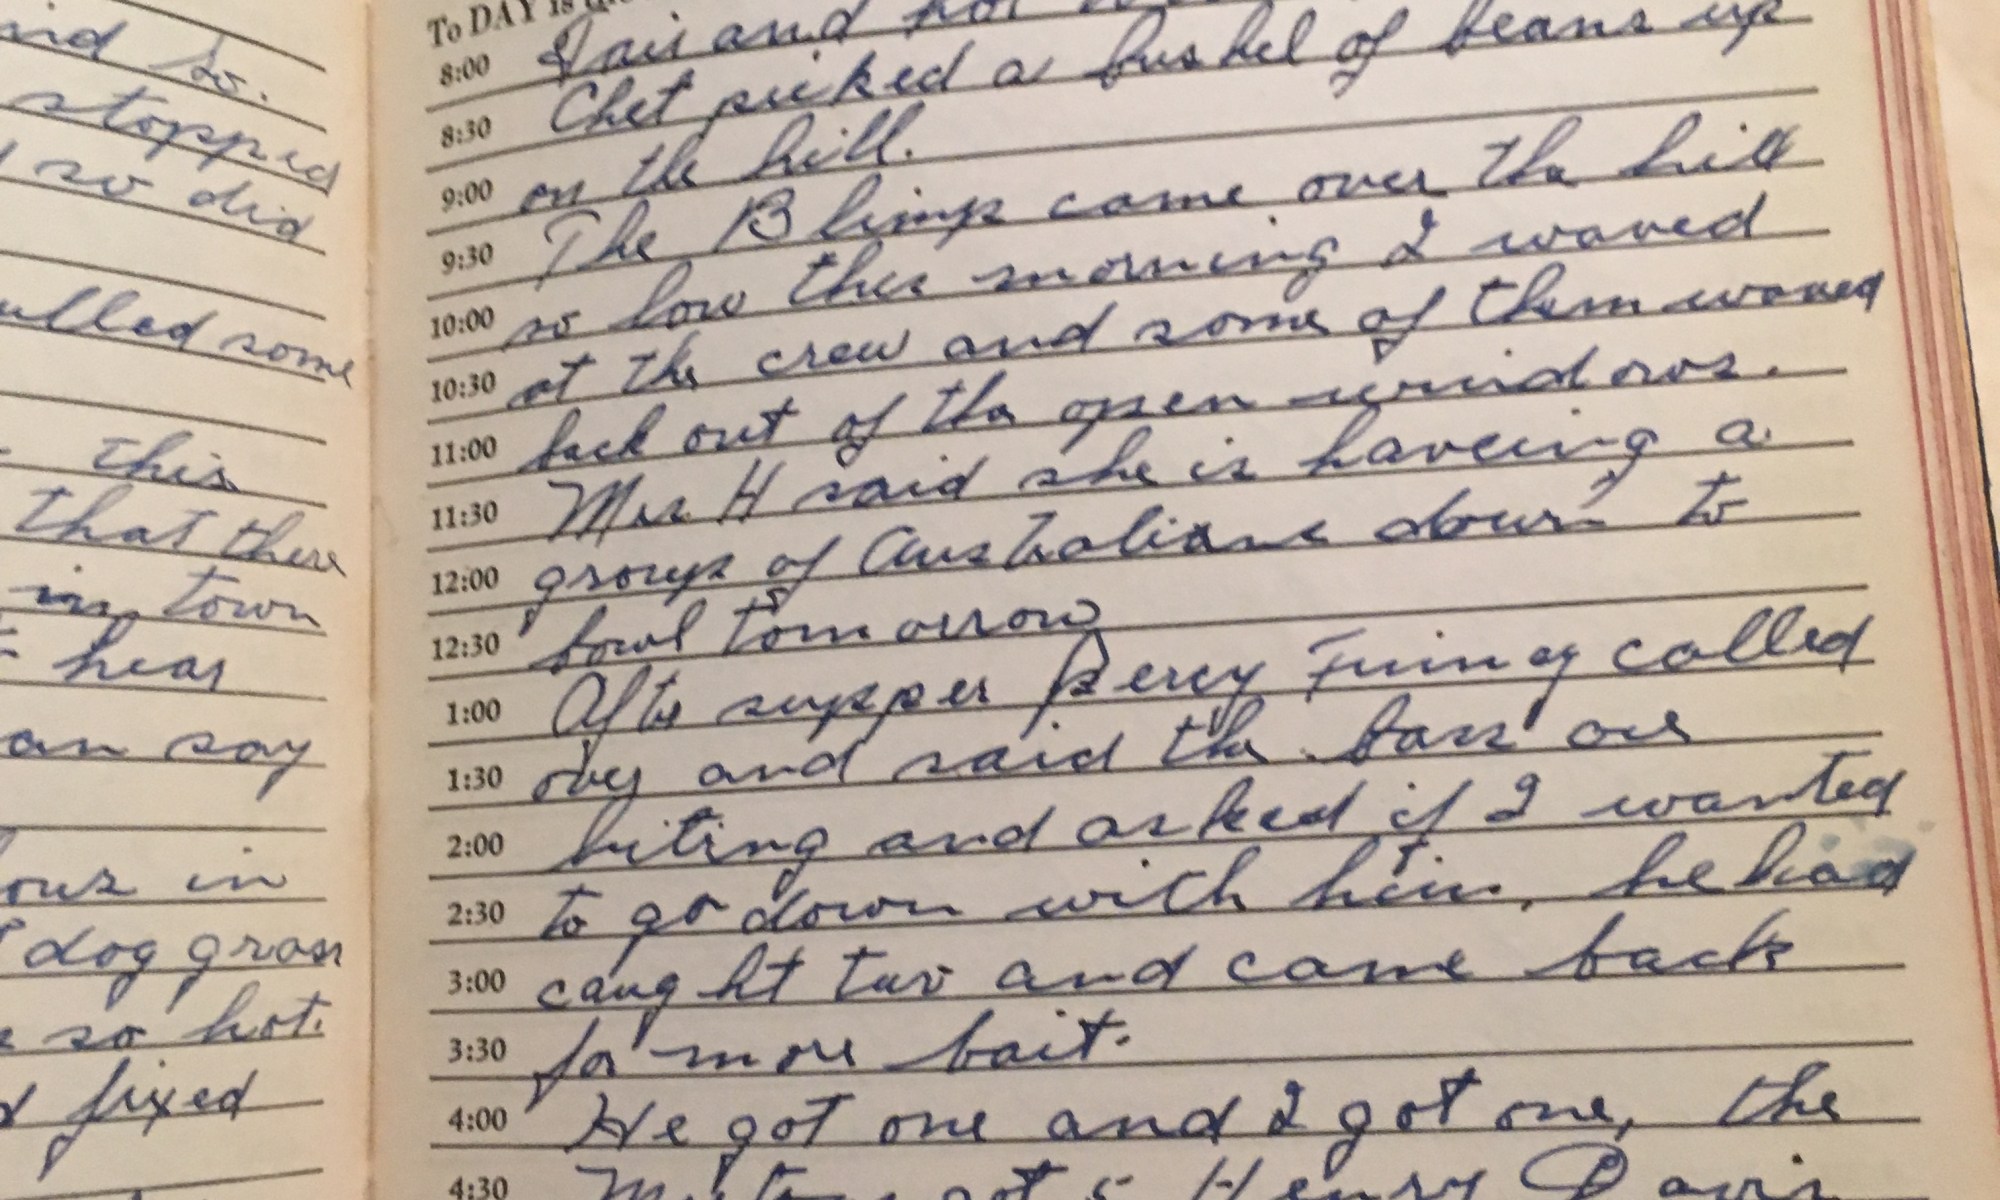 nd so.
stopped
so did
ulled some
this
that there
in town
hear
an say
ours in
dog grass
so hot.
fixed
To DAY is
8:00 Fair and hot
8:30 Chet picked a bushel of beans up
9:00 on the hill.
9:30 The Blimp came over the hill
10:00 so low this morning I waved
10:30 at the crew and some of them waved
11:00 back out of the open windows.
11:30 Mrs H said she is haveing a
12:00 group of Australians down to
12:30 bowl tomorrow
1:00 After supper Percy called
1:30 over and said the bass are
2:00 biting and asked if I wanted
2:30 to go down with him, he had
3:00 caught two and came back
3:30 for more bait.
4:00 He got one and I got one, the
4:30 got 5 Henry Davis